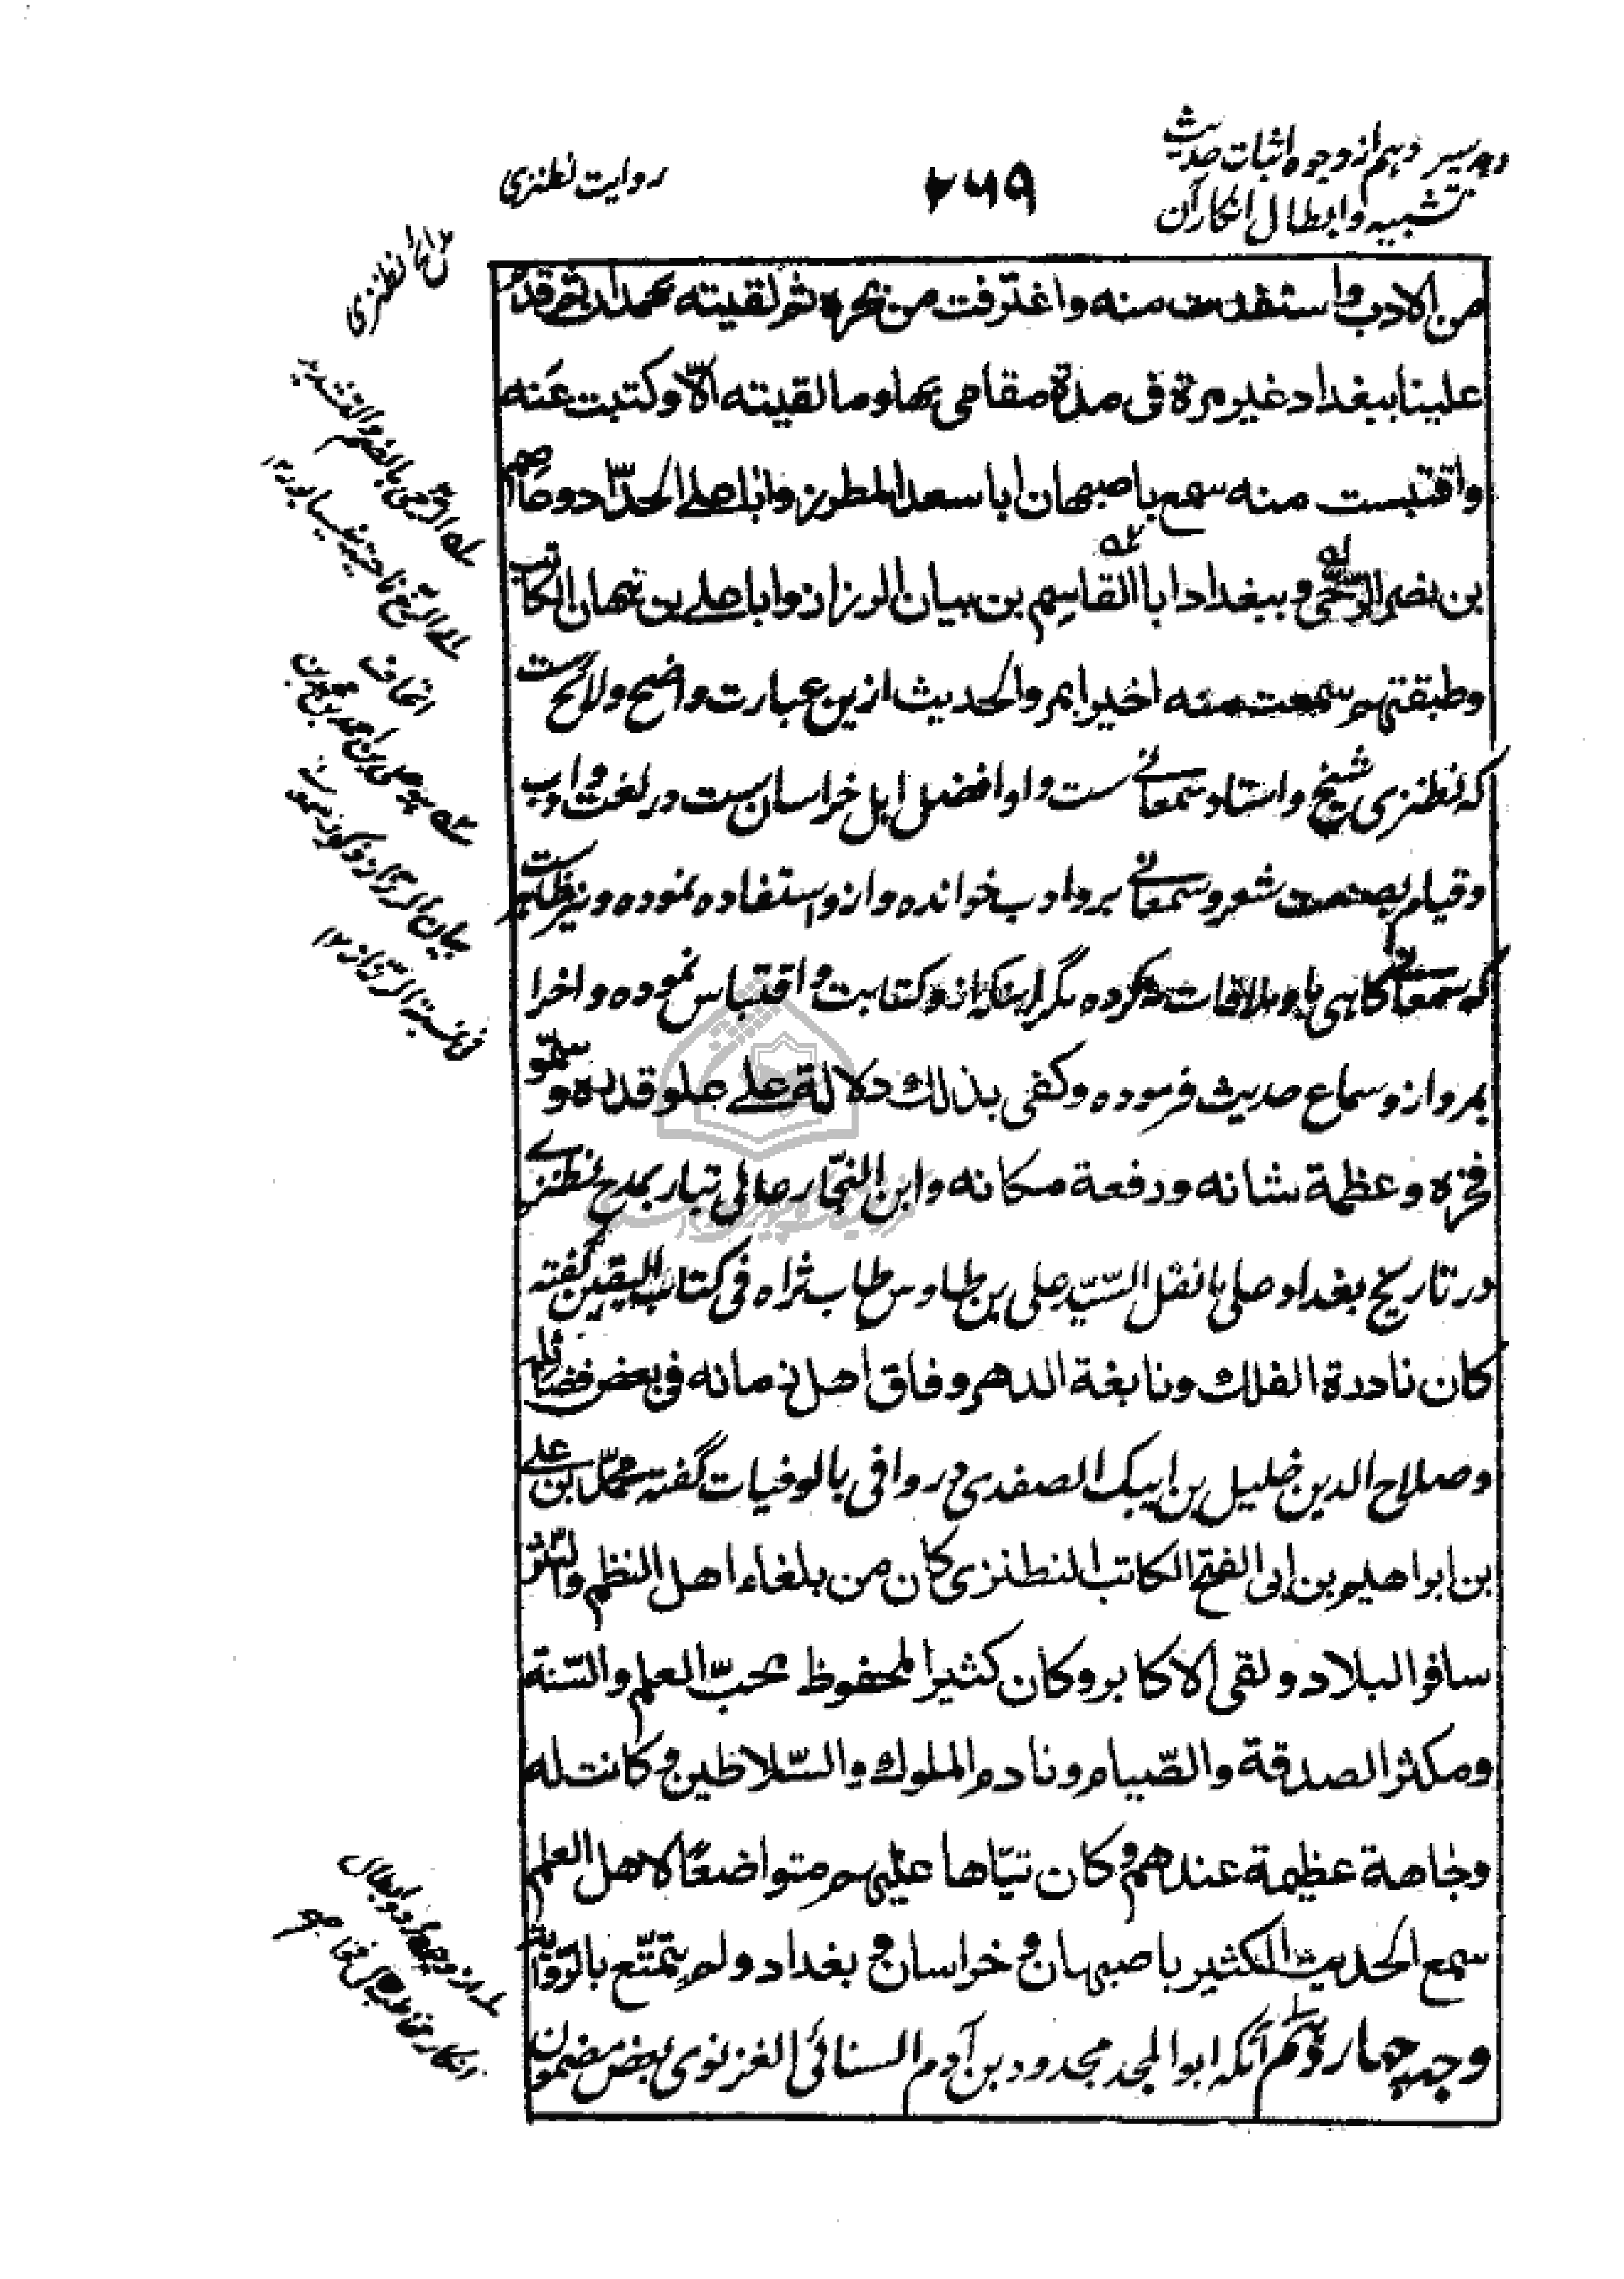 وجه سیزدهم از وجوه اثبات حدیث
تشبیه و ابطال انکار آن
۲۶۹
روایت نطنزی
من الادب واستفدت منه واغترفت من بحره ثم لقيته بهمدان ثم قدم
علينا ببغداد غير مرة فى مدة مقامى بها وما لقيته الّا وكتبت عنه
واقتبست منه سمع باصبهان ابا سعد المطرز وابا على الحدّاد وغانم
بن نصر البرجى وببغداد ابا القاسم بن بيان الرزاز وابا على بن نبهان الكاتب
وطبقتهم سمعت منه اخيرا بمرو الحديث ازین عبارت واضح ولائحست
که نطنزی شیخ و استاد سمعانی ست و او افضل اهل خراسان ست در لغت و ادب
و قیام بصنعت شعر و سمعانی برو ادب خوانده و ازو استفاده نموده و نیز ظاهرست
که سمعانی گاهی با و ملاقات نکرده مگر اینکه ازو کتابت و اقتباس نموده و اخرا
بمرو ازو سماع حدیث فرموده وكفى بذلك دلالة على علو قدره وسموّ
فخره وعظمة شانه ورفعة مكانه وابن النجّار عالی تبار بمدح نطنزی
در تاریخ بغداد على ما نقل السيّد على بن طاوس طاب ثراه فى كتاب اليقين گفته
كان نادرة الفلك ونابغة الدهر وفاق اهل زمانه فى بعض فضائله
وصلاح الدین خلیل بن ایبک الصفدی در وافی بالوفیات گفته محمّد بن على
بن ابراهيم بن ابى الفتح الكاتب النطنزى كان من بلغاء اهل النظم والنثر
سافر البلاد ولقى الاكابر وكان كثير المحفوظ يحبّ العلم والسّنة
ومكثر الصدقة والصّيام ونادم الملوك والسّلاطين وكانت له
وجاهة عظيمة عندهم وكان تيّاها عليهم متواضعًا لاهل العلم
سمع الحديث الكثير باصبهان وخراسان وبغداد ولم يتمتّع بالرّواية
وجه چهاردهم آنکه ابو المجد مجدود بن آدم السنائی الغزنوی بعض مضمون
نطنزی
بیان الرزاز